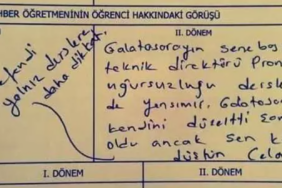 HBER ÖĞRETMENİNİN ÖĞRENCİ HAKKINDAKİ GÖRÜŞÜ
II. DÖNEM
efendi
yalnız derslere
daha dikkat.
Galatasarayın sene baş
teknik direktörü Pran
uğursuzluğu dersle
de yansımır. Galatasar
kendini düzeltti son
oldu ancak sen k
düştün Cela
I. DÖNEM
II. DÖNEM